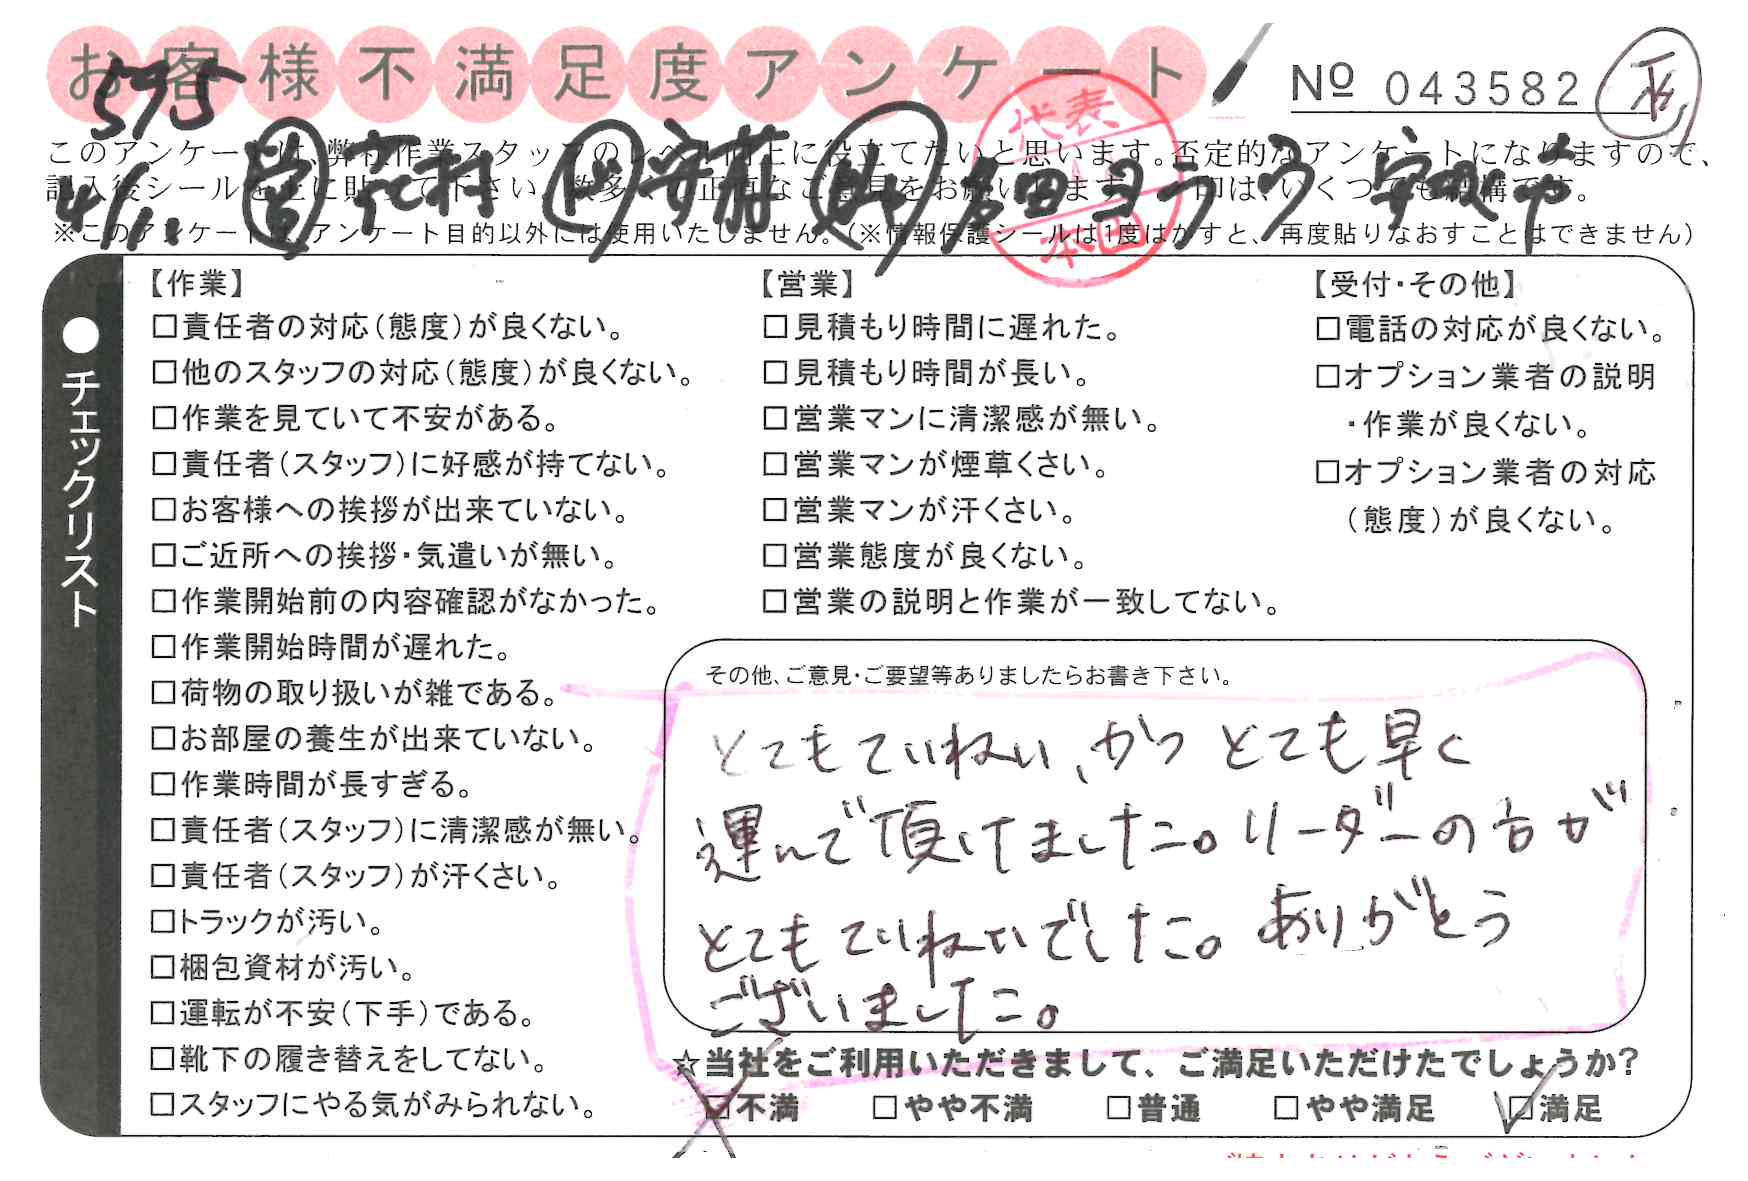 お客様不満足度アンケート
№ 043582
575
このアンケートは、弊社作業スタッフのレベル向上に役立てたいと思います。否定的なアンケートになりますので、
記入後シールを上に貼って下さい。数多くの正直なご意見をお願いします。 印は、いくつでも結構です。
4/11.
代表
本田
※このアンケートは、アンケート目的以外には使用いたしません。(※情報保護シールは1度はがすと、再度貼りなおすことはできません)
●チェックリスト
【作業】
□責任者の対応(態度)が良くない。
□他のスタッフの対応(態度)が良くない。
□作業を見ていて不安がある。
□責任者(スタッフ)に好感が持てない。
□お客様への挨拶が出来ていない。
□ご近所への挨拶・気遣いが無い。
□作業開始前の内容確認がなかった。
□作業開始時間が遅れた。
□荷物の取り扱いが雑である。
□お部屋の養生が出来ていない。
□作業時間が長すぎる。
□責任者(スタッフ)に清潔感が無い。
□責任者(スタッフ)が汗くさい。
□トラックが汚い。
□梱包資材が汚い。
□運転が不安(下手)である。
□靴下の履き替えをしてない。
□スタッフにやる気がみられない。
【営業】
□見積もり時間に遅れた。
□見積もり時間が長い。
□営業マンに清潔感が無い。
□営業マンが煙草くさい。
□営業マンが汗くさい。
□営業態度が良くない。
□営業の説明と作業が一致してない。
【受付・その他】
□電話の対応が良くない。
□オプション業者の説明
・作業が良くない。
□オプション業者の対応
(態度)が良くない。
その他、ご意見・ご要望等ありましたらお書き下さい。
とてもていねい、かつ とても早く
運んで頂けてましした。リーダーの方が
とてもていねいでした。ありがとう
ございました。
☆当社をご利用いただきまして、ご満足いただけたでしょうか?
□不満 □やや不満 □普通 □やや満足 □満足